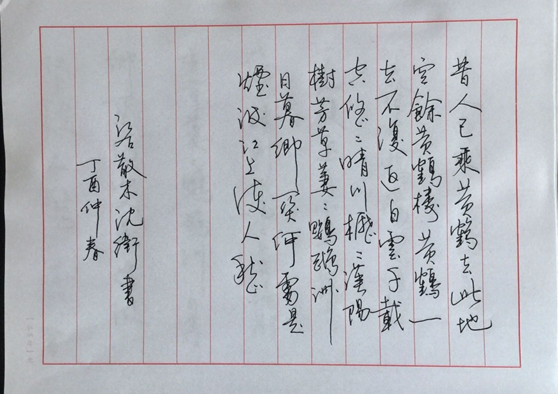 昔人已乘黄鶴去此地
空餘黄鶴樓黄鶴一
去不復返白雲千載
空悠〻晴川歷〻漢陽
樹芳草萋〻鸚鵡洲
日暮鄉關何處是
煙波江上使人愁
沈衛書
丁酉仲春